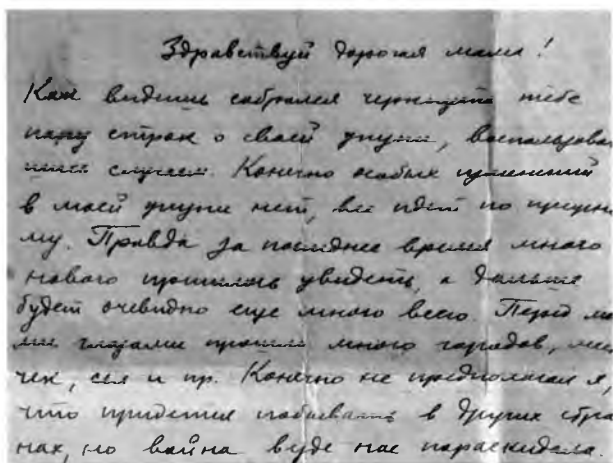 Здравствуй дорогая мама!
Как видишь собрался черкнуть тебе
пару строк о своей жизни, воспользовав
шись случаем. Конечно особых изменений
в моей жизни нет, все идет по прежне
му. Правда за последнее время много
нового пришлось увидеть, а дальше
будет очевидно еще много всего. Перед мо
ми глазами прошли много городов, мес
чек, сел и пр. Конечно не предполагал я,
что придется побывать в других стра
нах, но война везде нас пораскидала.